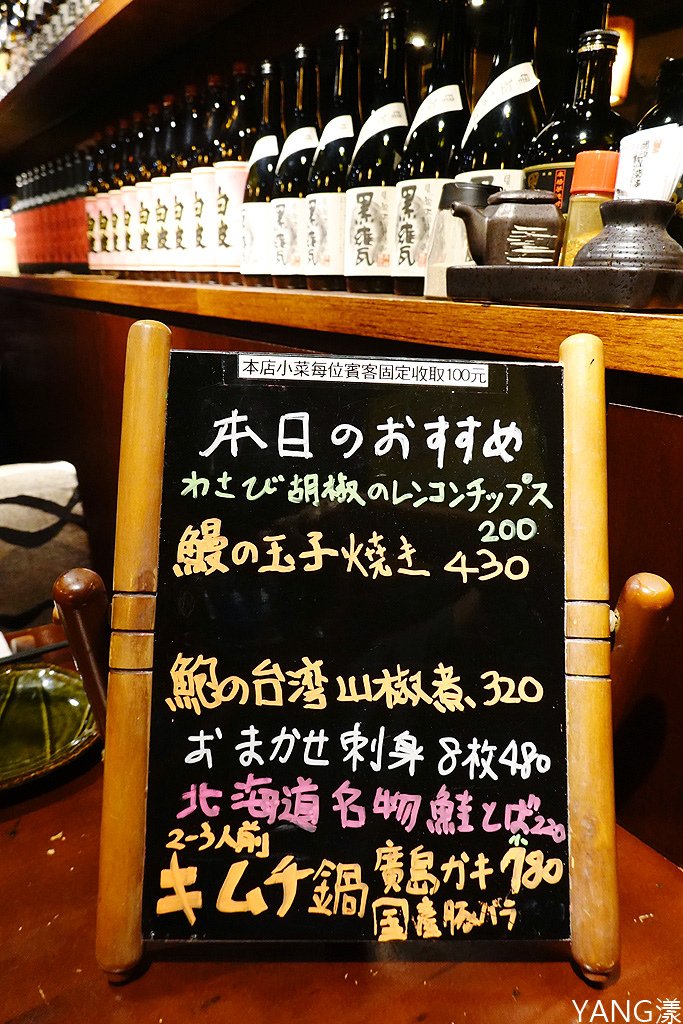 白波
白波
白波
白波
黒甕
黒甕
本店小菜每位賓客固定收取100元
本日のおすすめ
わさび胡椒のレンコンチップス
200
鰻の玉子焼き 430
鮑の台湾山椒煮、320
おまかせ刺身 8枚480
北海道名物鮭とば220
2-3人前
キムチ鍋 廣島ガキ
国産豚バラ
小780
YANG漾